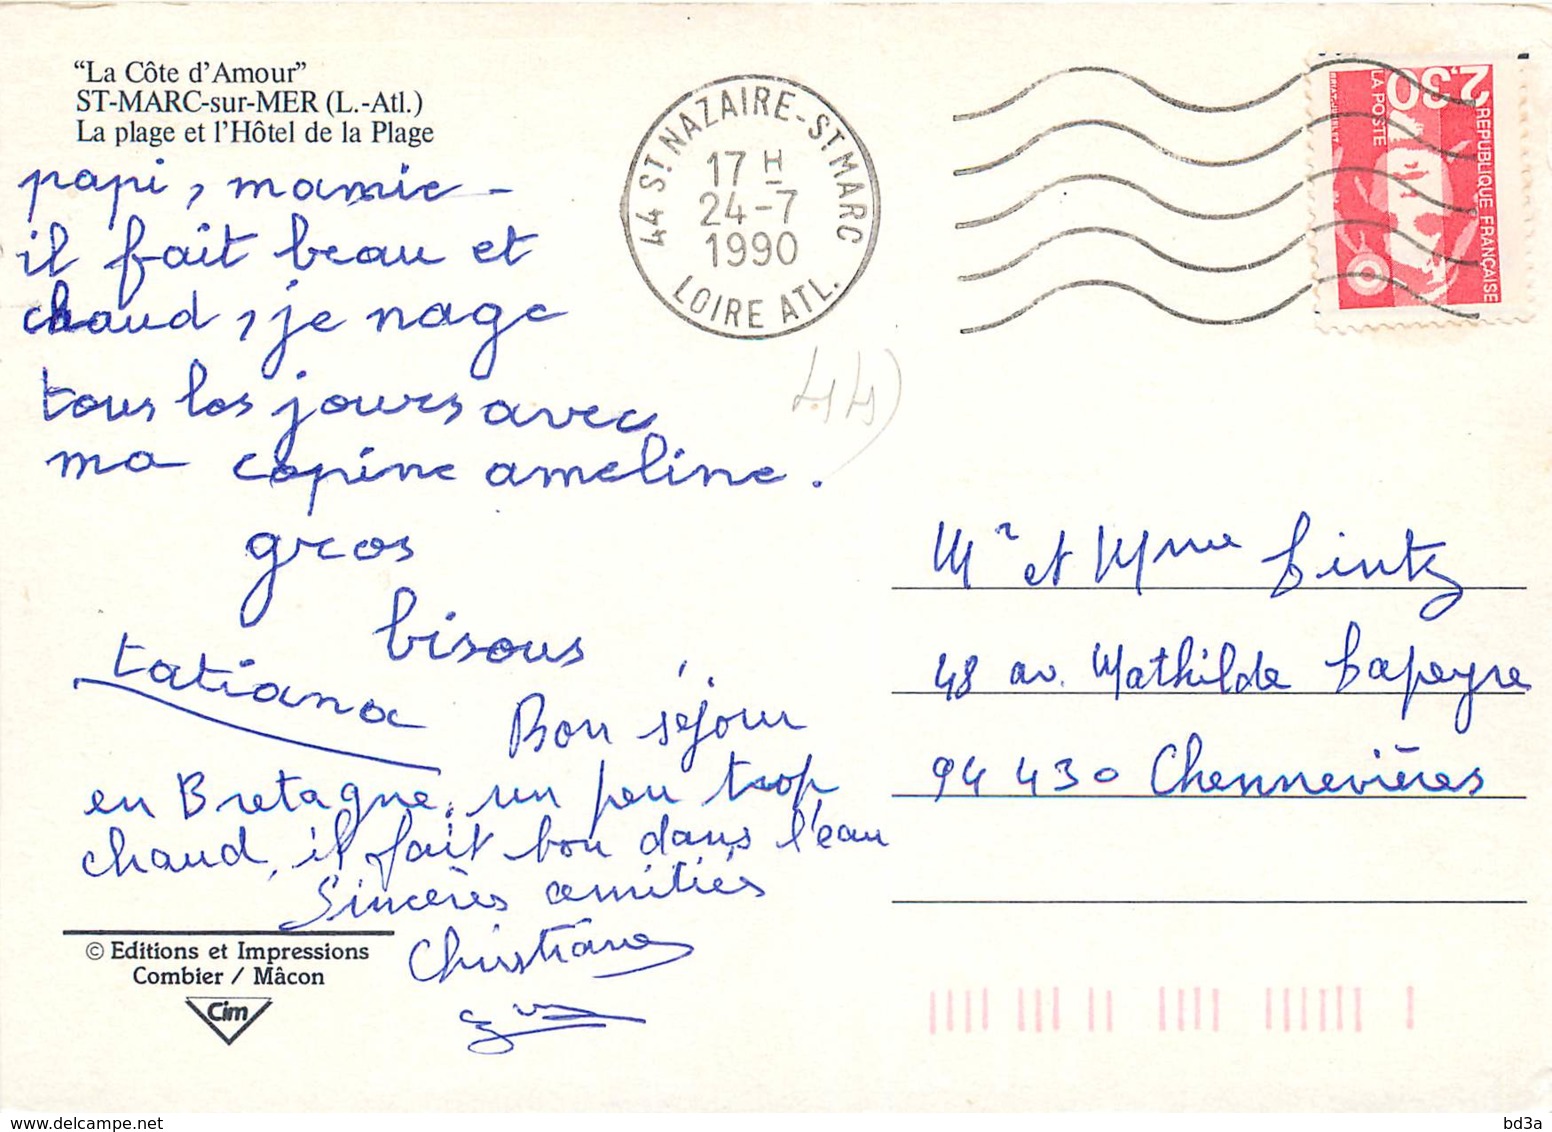 "La Côte d'Amour"
ST-MARC-sur-MER (L.-Atl.)
La plage et l'Hôtel de la Plage
papi, mamie -
il fait beau et
chaud, je nage
tous les jours avec
ma copine ameline.
gros
bisous
tatiana
Bon séjour
en Bretagne, un peu trop
chaud, il fait bon dans l'eau
Sincères amitiés
Christiane
© Editions et Impressions
Combier / Mâcon
Cim
44 ST NAZAIRE - ST MARC
17 H
24-7
1990
LOIRE ATL.
2,30
LA POSTE
REPUBLIQUE FRANÇAISE
44)
Mr et Mme
48 av. Mathilde Lapeyre
94 430 Chennevières
www.delcampe.net
bd3a